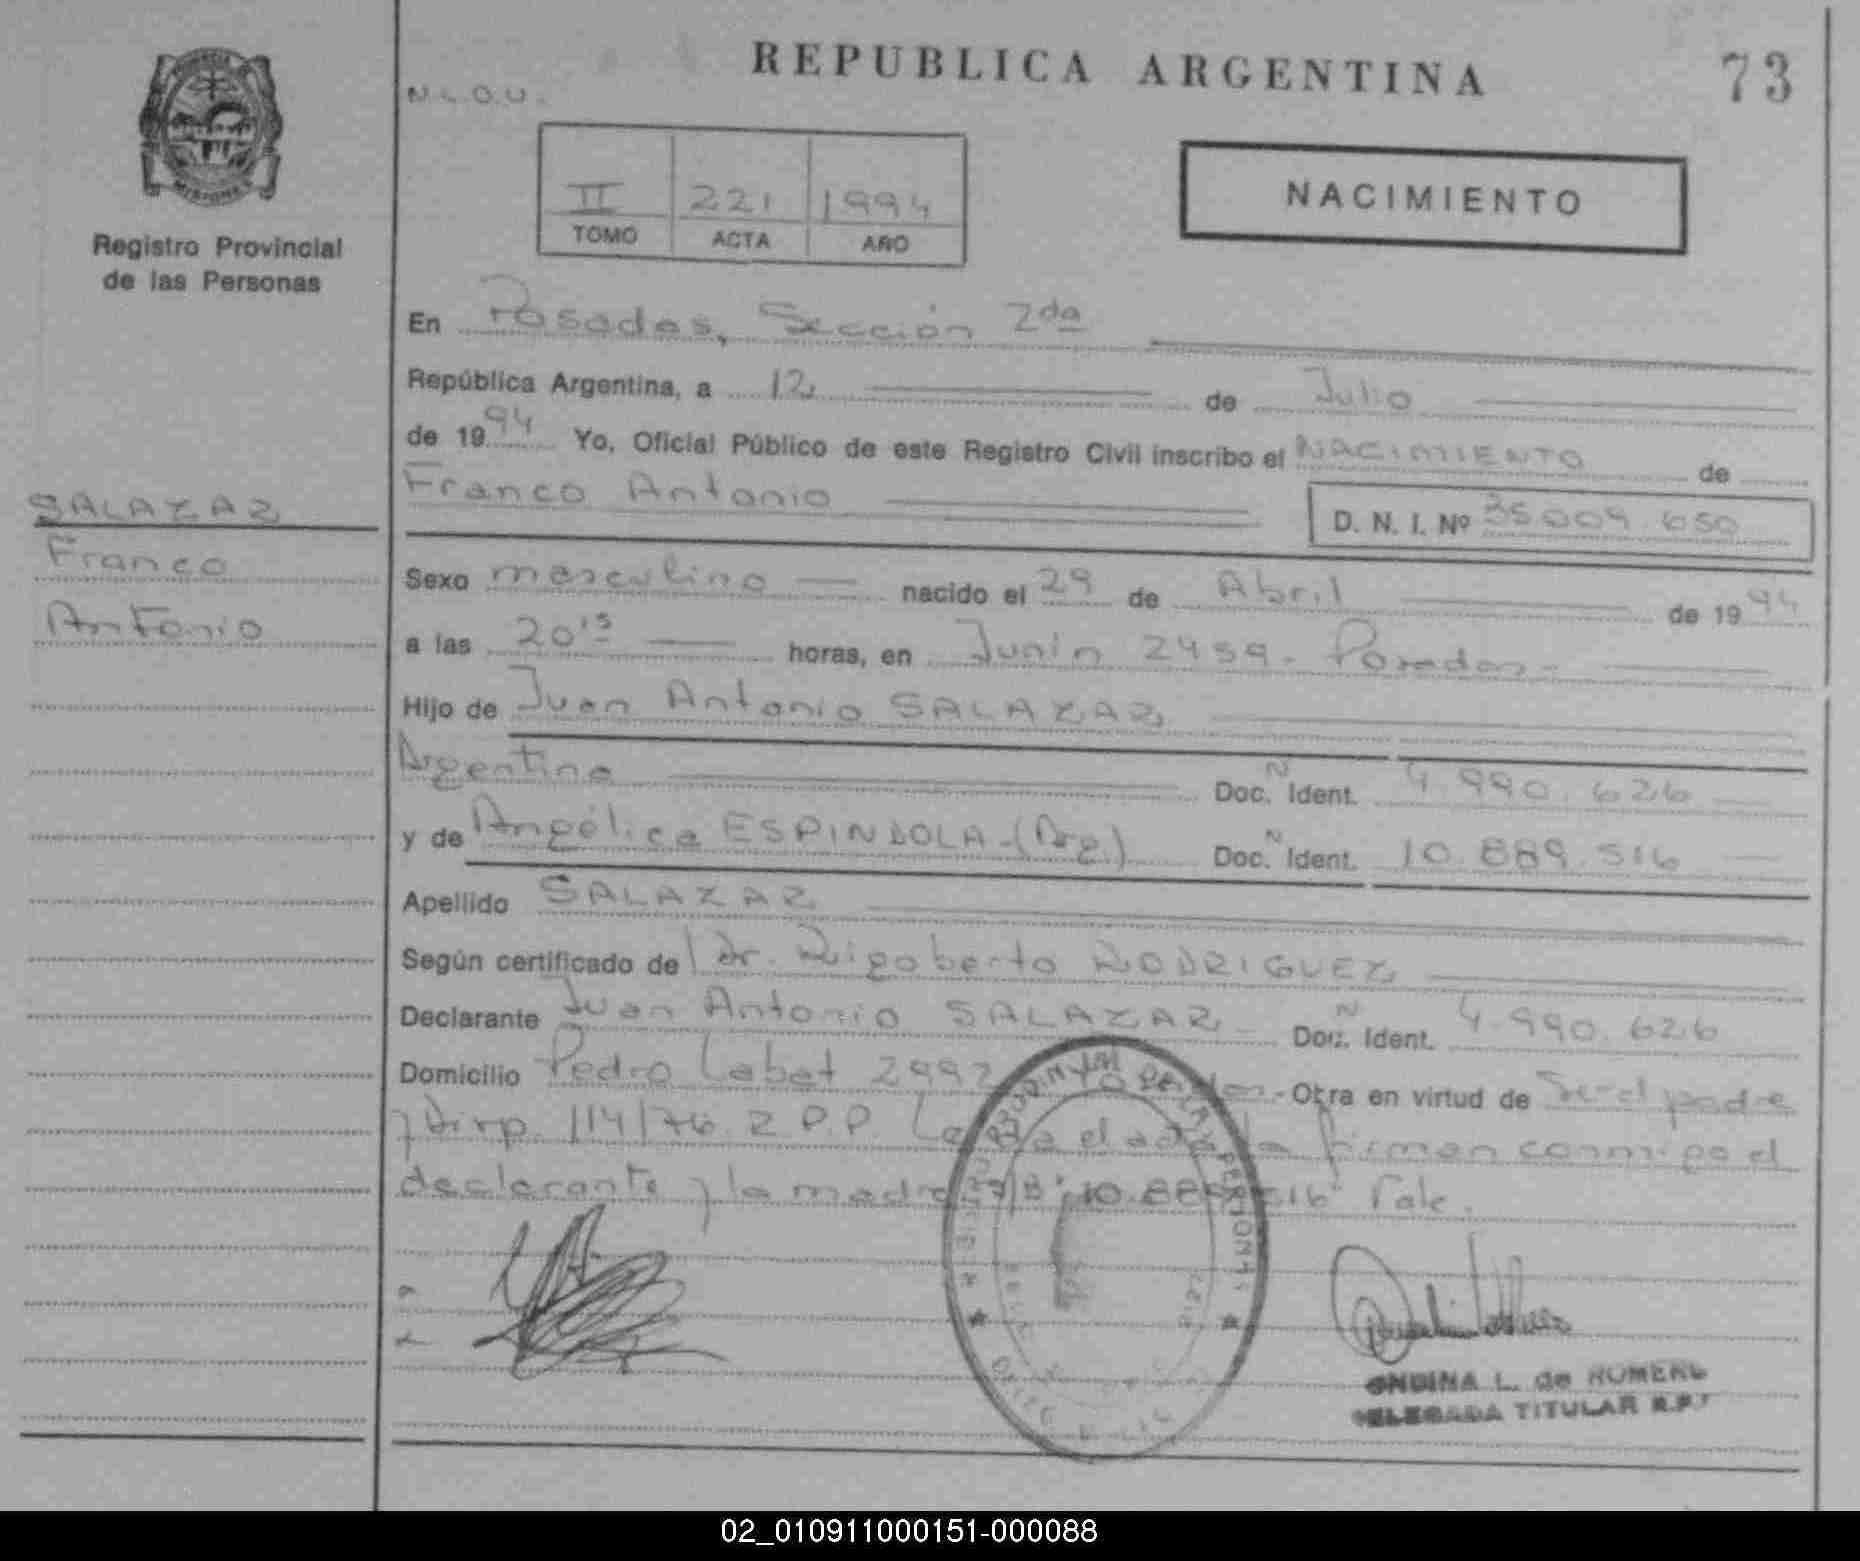 REPUBLICA ARGENTINA
73
N.L.O.U.
II 221 1994
TOMO ACTA AÑO
NACIMIENTO
MISIONES
Registro Provincial
de las Personas
SALAZAR
Franco
Antonio
En Posadas, Sección 2da
República Argentina, a 12 de Julio
de 1994 Yo, Oficial Público de este Registro Civil inscribo el NACIMIENTO de
Franco Antonio D. N. I. Nº 35.004.650
Sexo masculino nacido el 29 de Abril de 1994
a las 20 15 horas, en Junín 2459 - Posadas -
Hijo de Juan Antonio SALAZAR
Argentino Doc. N Ident. 4.990.626
y de Angélica ESPINDOLA - (Arg.) Doc. N Ident. 10.889.516
Apellido SALAZAR
Según certificado de Dr. Rigoberto RODRIGUEZ
Declarante Juan Antonio SALAZAR Doc. N Ident. 4.990.626
Domicilio Pedro Labat 2992 Obra en virtud de Ser el padre
y Disp. 114/76. R.P.P. el acta la firman conmigo el
declarante y la madre S/B: "10.889.516" Vale.
ONDINA L. de ROMERO
DELEGADA TITULAR R.P.
02_010911000151-000088